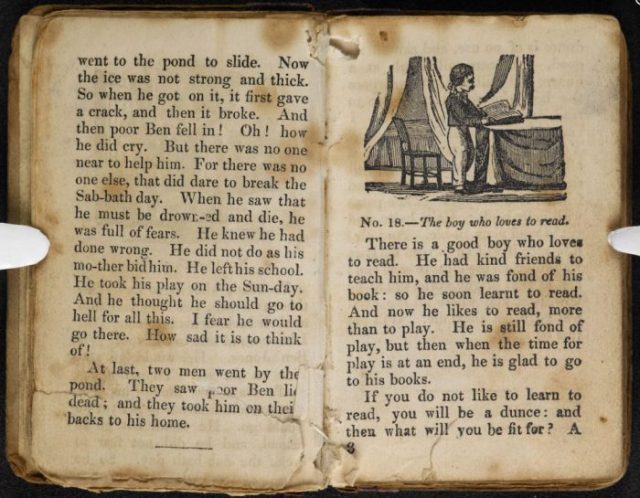 went to the pond to slide. Now
the ice was not strong and thick.
So when he got on it, it first gave
a crack, and then it broke. And
then poor Ben fell in! Oh! how
he did cry. But there was no one
near to help him. For there was no
one else, that did dare to break the
Sab-bath day. When he saw that
he must be drown-ed and die, he
was full of fears. He knew he had
done wrong. He did not do as his
mo-ther bid him. He left his school.
He took his play on the Sun-day.
And he thought he should go to
hell for all this. I fear he would
go there. How sad it is to think
of!
At last, two men went by the
pond. They saw poor Ben lie
dead; and they took him on their
backs to his home.
No. 18.—The boy who loves to read.
There is a good boy who loves
to read. He had kind friends to
teach him, and he was fond of his
book: so he soon learnt to read.
And now he likes to read, more
than to play. He is still fond of
play, but then when the time for
play is at an end, he is glad to go
to his books.
If you do not like to learn to
read, you will be a dunce: and
then what will you be fit for? A
8